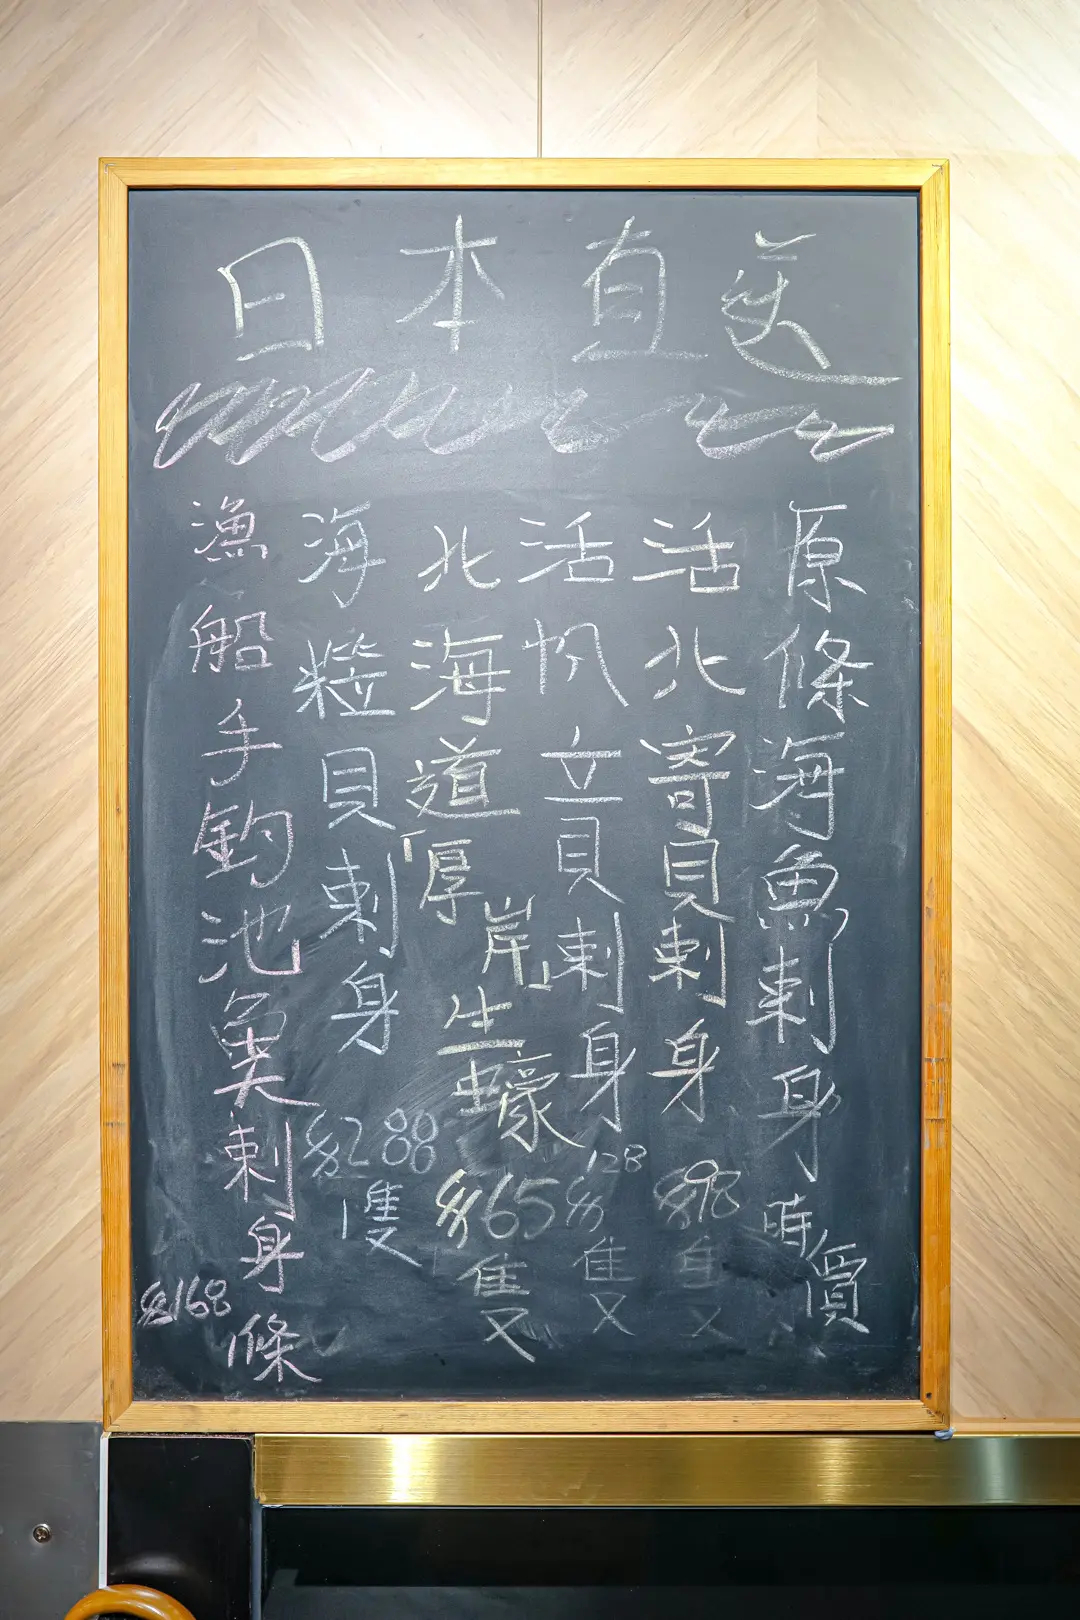 日本直送
原條海魚刺身時價
活北寄貝刺身$98隻
活帆立貝刺身$128隻
北海道「厚岸」生蠔$65隻
海粒貝刺身$288隻
漁船手釣池魚刺身$168條